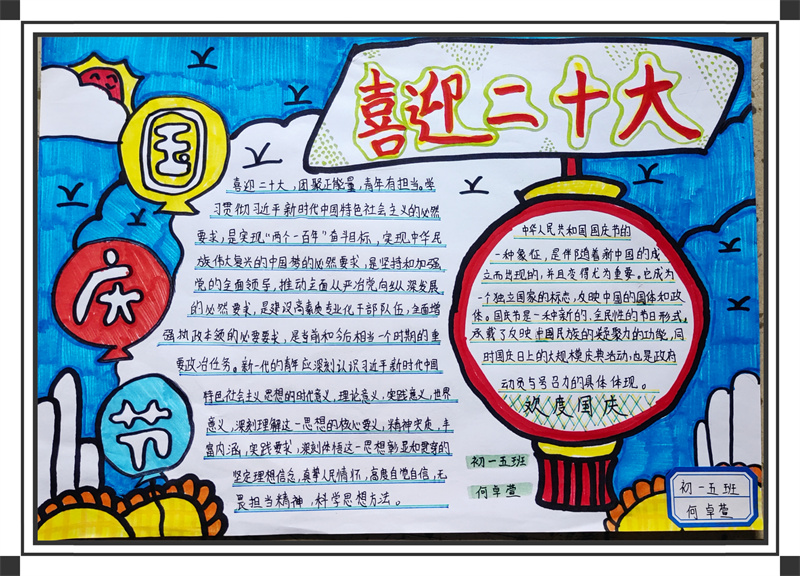 喜迎二十大
国
庆
节
喜迎二十大,团聚正能量,青年有担当。学
习贯彻习近平新时代中国特色社会主义的必然
要求,是实现“两个一百年”奋斗目标,实现中华民
族伟大复兴的中国梦的必然要求,是坚持和加强
党的全面领导,推动全面从严治党向纵深发展
的必然要求,是建设高素质专业化干部队伍,全面增
强执政本领的必要要求,是当前和今后相当一个时期的重
要政治任务。新一代的青年应深刻认识习近平新时代中国
特色社会主义思想的时代意义,理论意义,实践意义,世界
意义,深刻理解这一思想的核心要义,精神实质,丰
富内涵,实践要求,深刻体悟这一思想彰显和贯穿的
坚定理想信念,真挚人民情怀,高度自觉自信,无
畏担当精神,科学思想方法。
中华人民共和国国庆节的
一种象征,是伴随着新中国的成
立而出现的,并且变得尤为重要。它成为
一个独立国家的标志,反映中国的国体和政
体。国庆节是一种新的、全民性的节日形式,
承载了反映中国民族的凝聚力的功能,同
时国庆日上的大规模庆典活动,也是政府
动员与号召力的具体体现。
欢度国庆
初一五班
何卓萱
初一五班
何卓萱